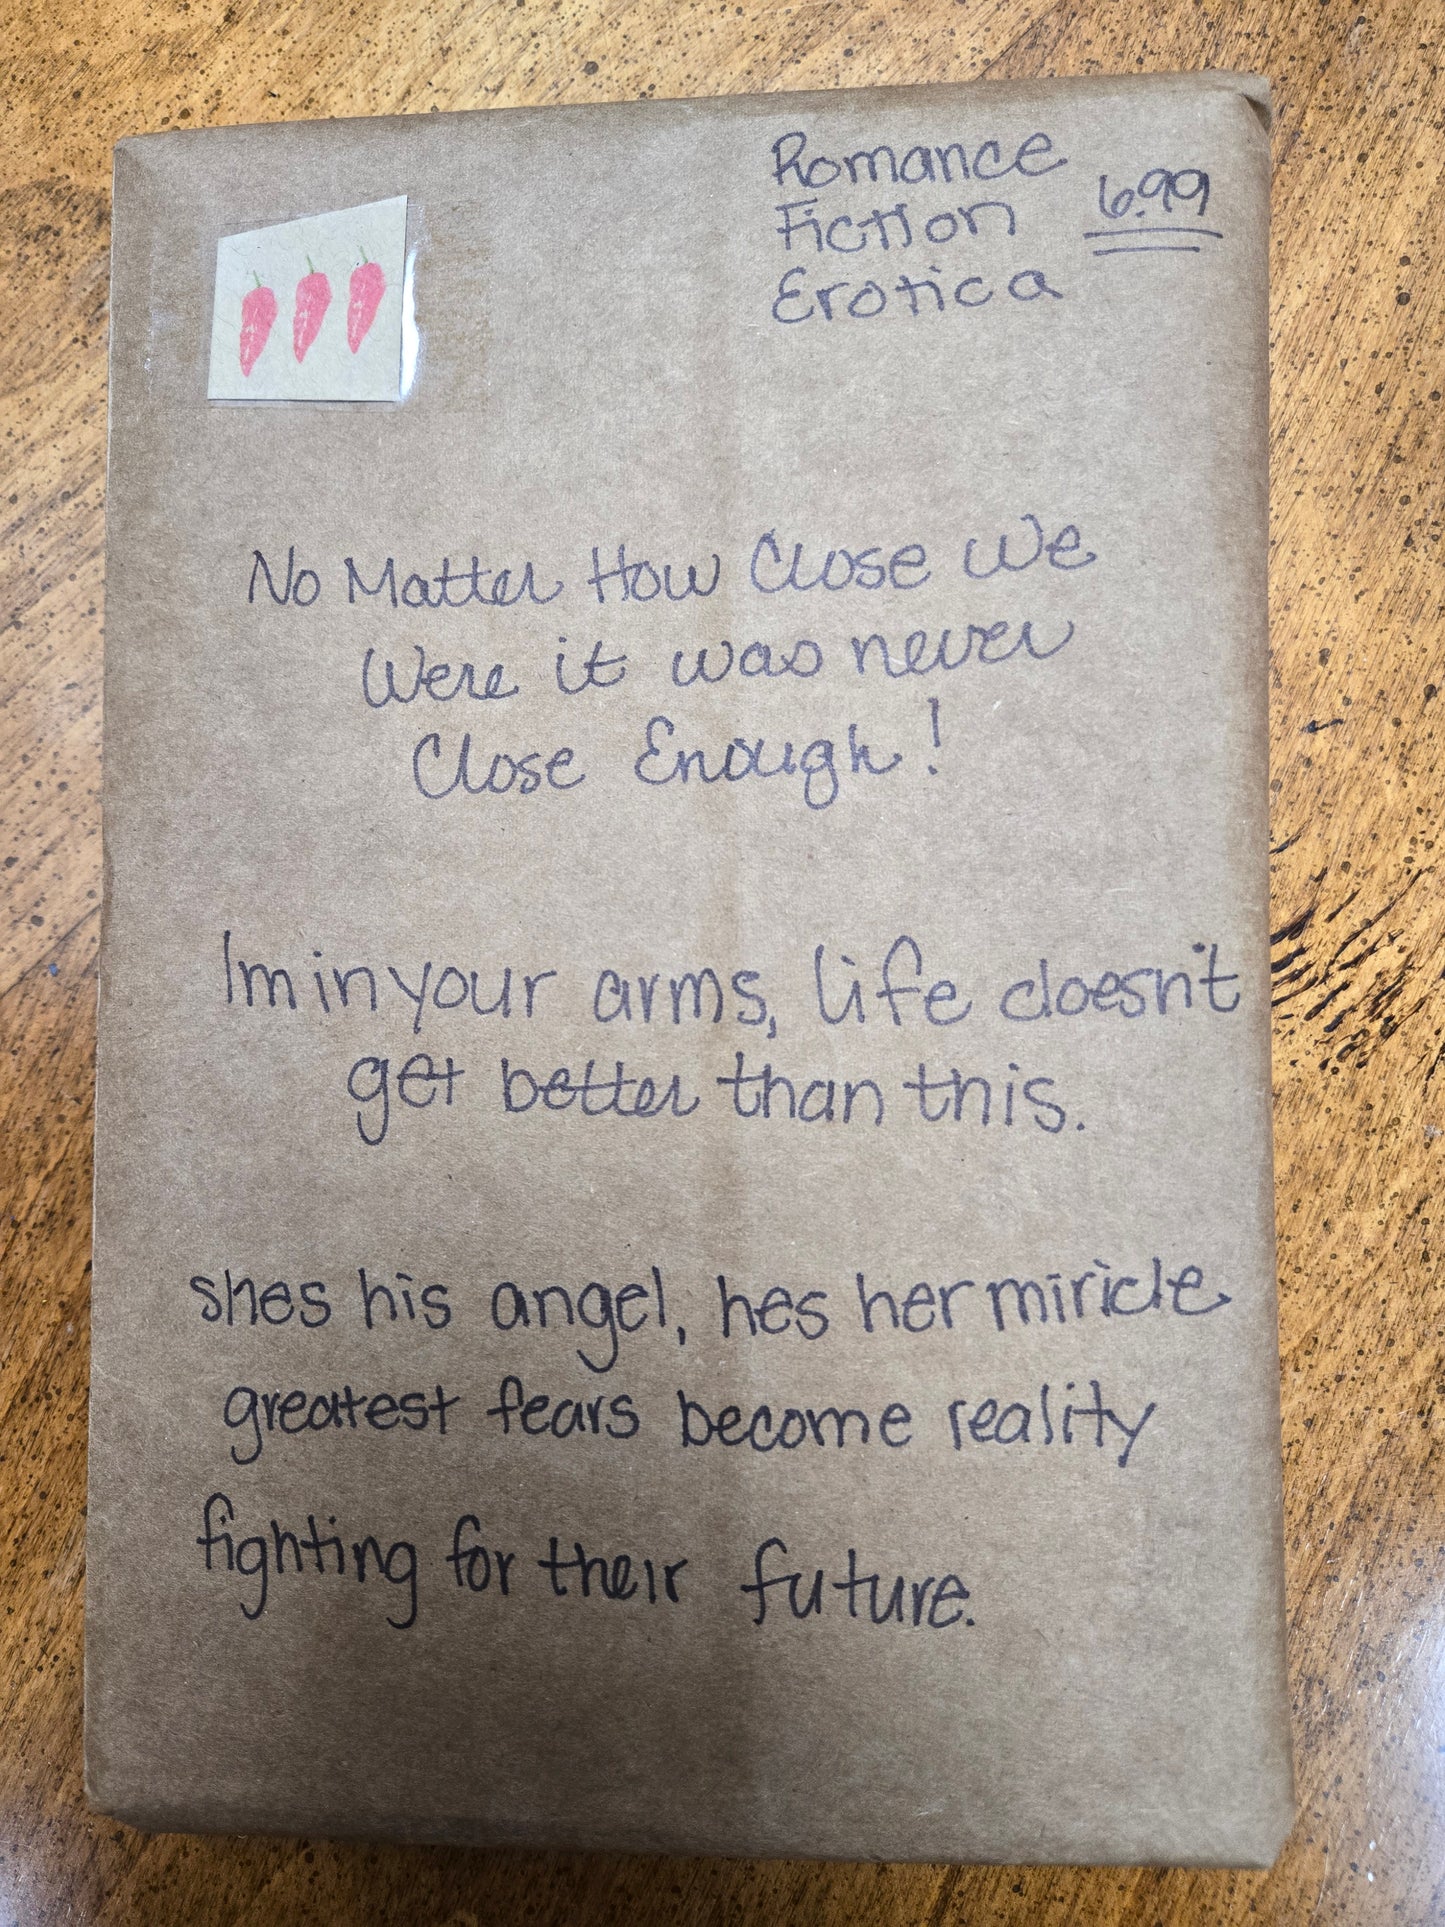 Romance
Fiction
Erotica
6.99
No Matter How Close We
Were it was never
Close Enough!
Im in your arms, life doesn't
get better than this.
shes his angel, hes her miricle
greatest fears become reality
fighting for their future.